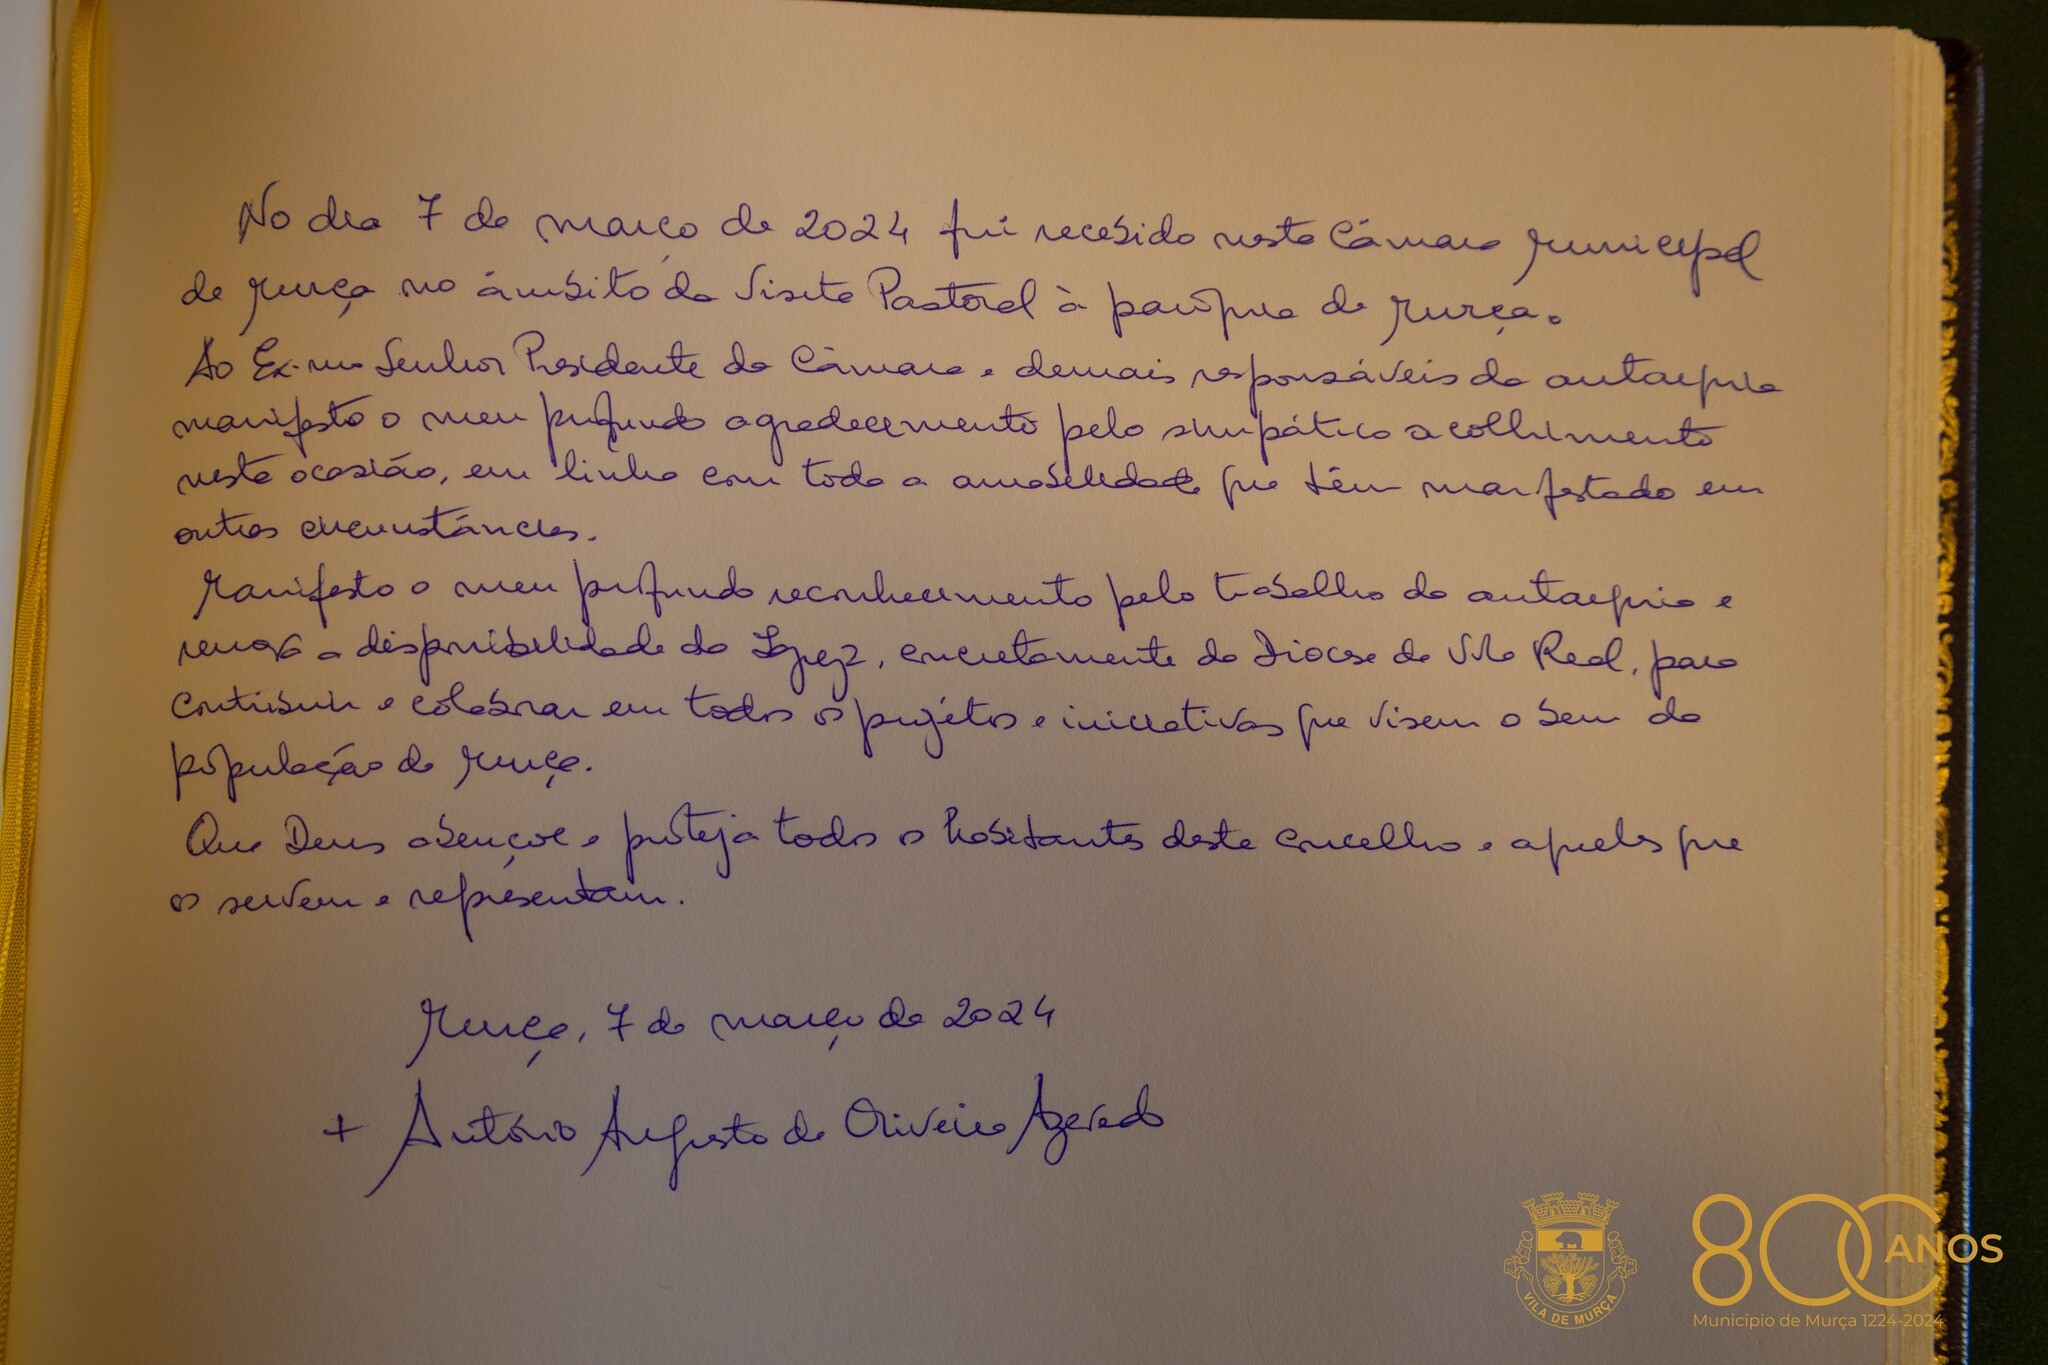 No dia 7 de março de 2024 fui recebido nesta Câmara Municipal
de Murça no âmbito da Visita Pastoral à paróquia de Murça.
Ao Ex.mo Senhor Presidente da Câmara e demais responsáveis da autarquia
manifesto o meu profundo agradecimento pelo simpático acolhimento
nesta ocasião, em linha com toda a amabilidade que têm manifestado em
outras circunstâncias.
Manifesto o meu profundo reconhecimento pelo trabalho da autarquia e
renovo a disponibilidade da Igreja, concretamente da Diocese de Vila Real, para
contribuir e colaborar em todos os projetos e iniciativas que visem o bem da
população de Murça.
Que Deus abençoe e proteja todos os habitantes deste concelho e aqueles que
os servem e representam.
Murça, 7 de março de 2024
+ António Augusto de Oliveira Azevedo
VILA DE MURÇA
800 ANOS
Município de Murça 1224-2024